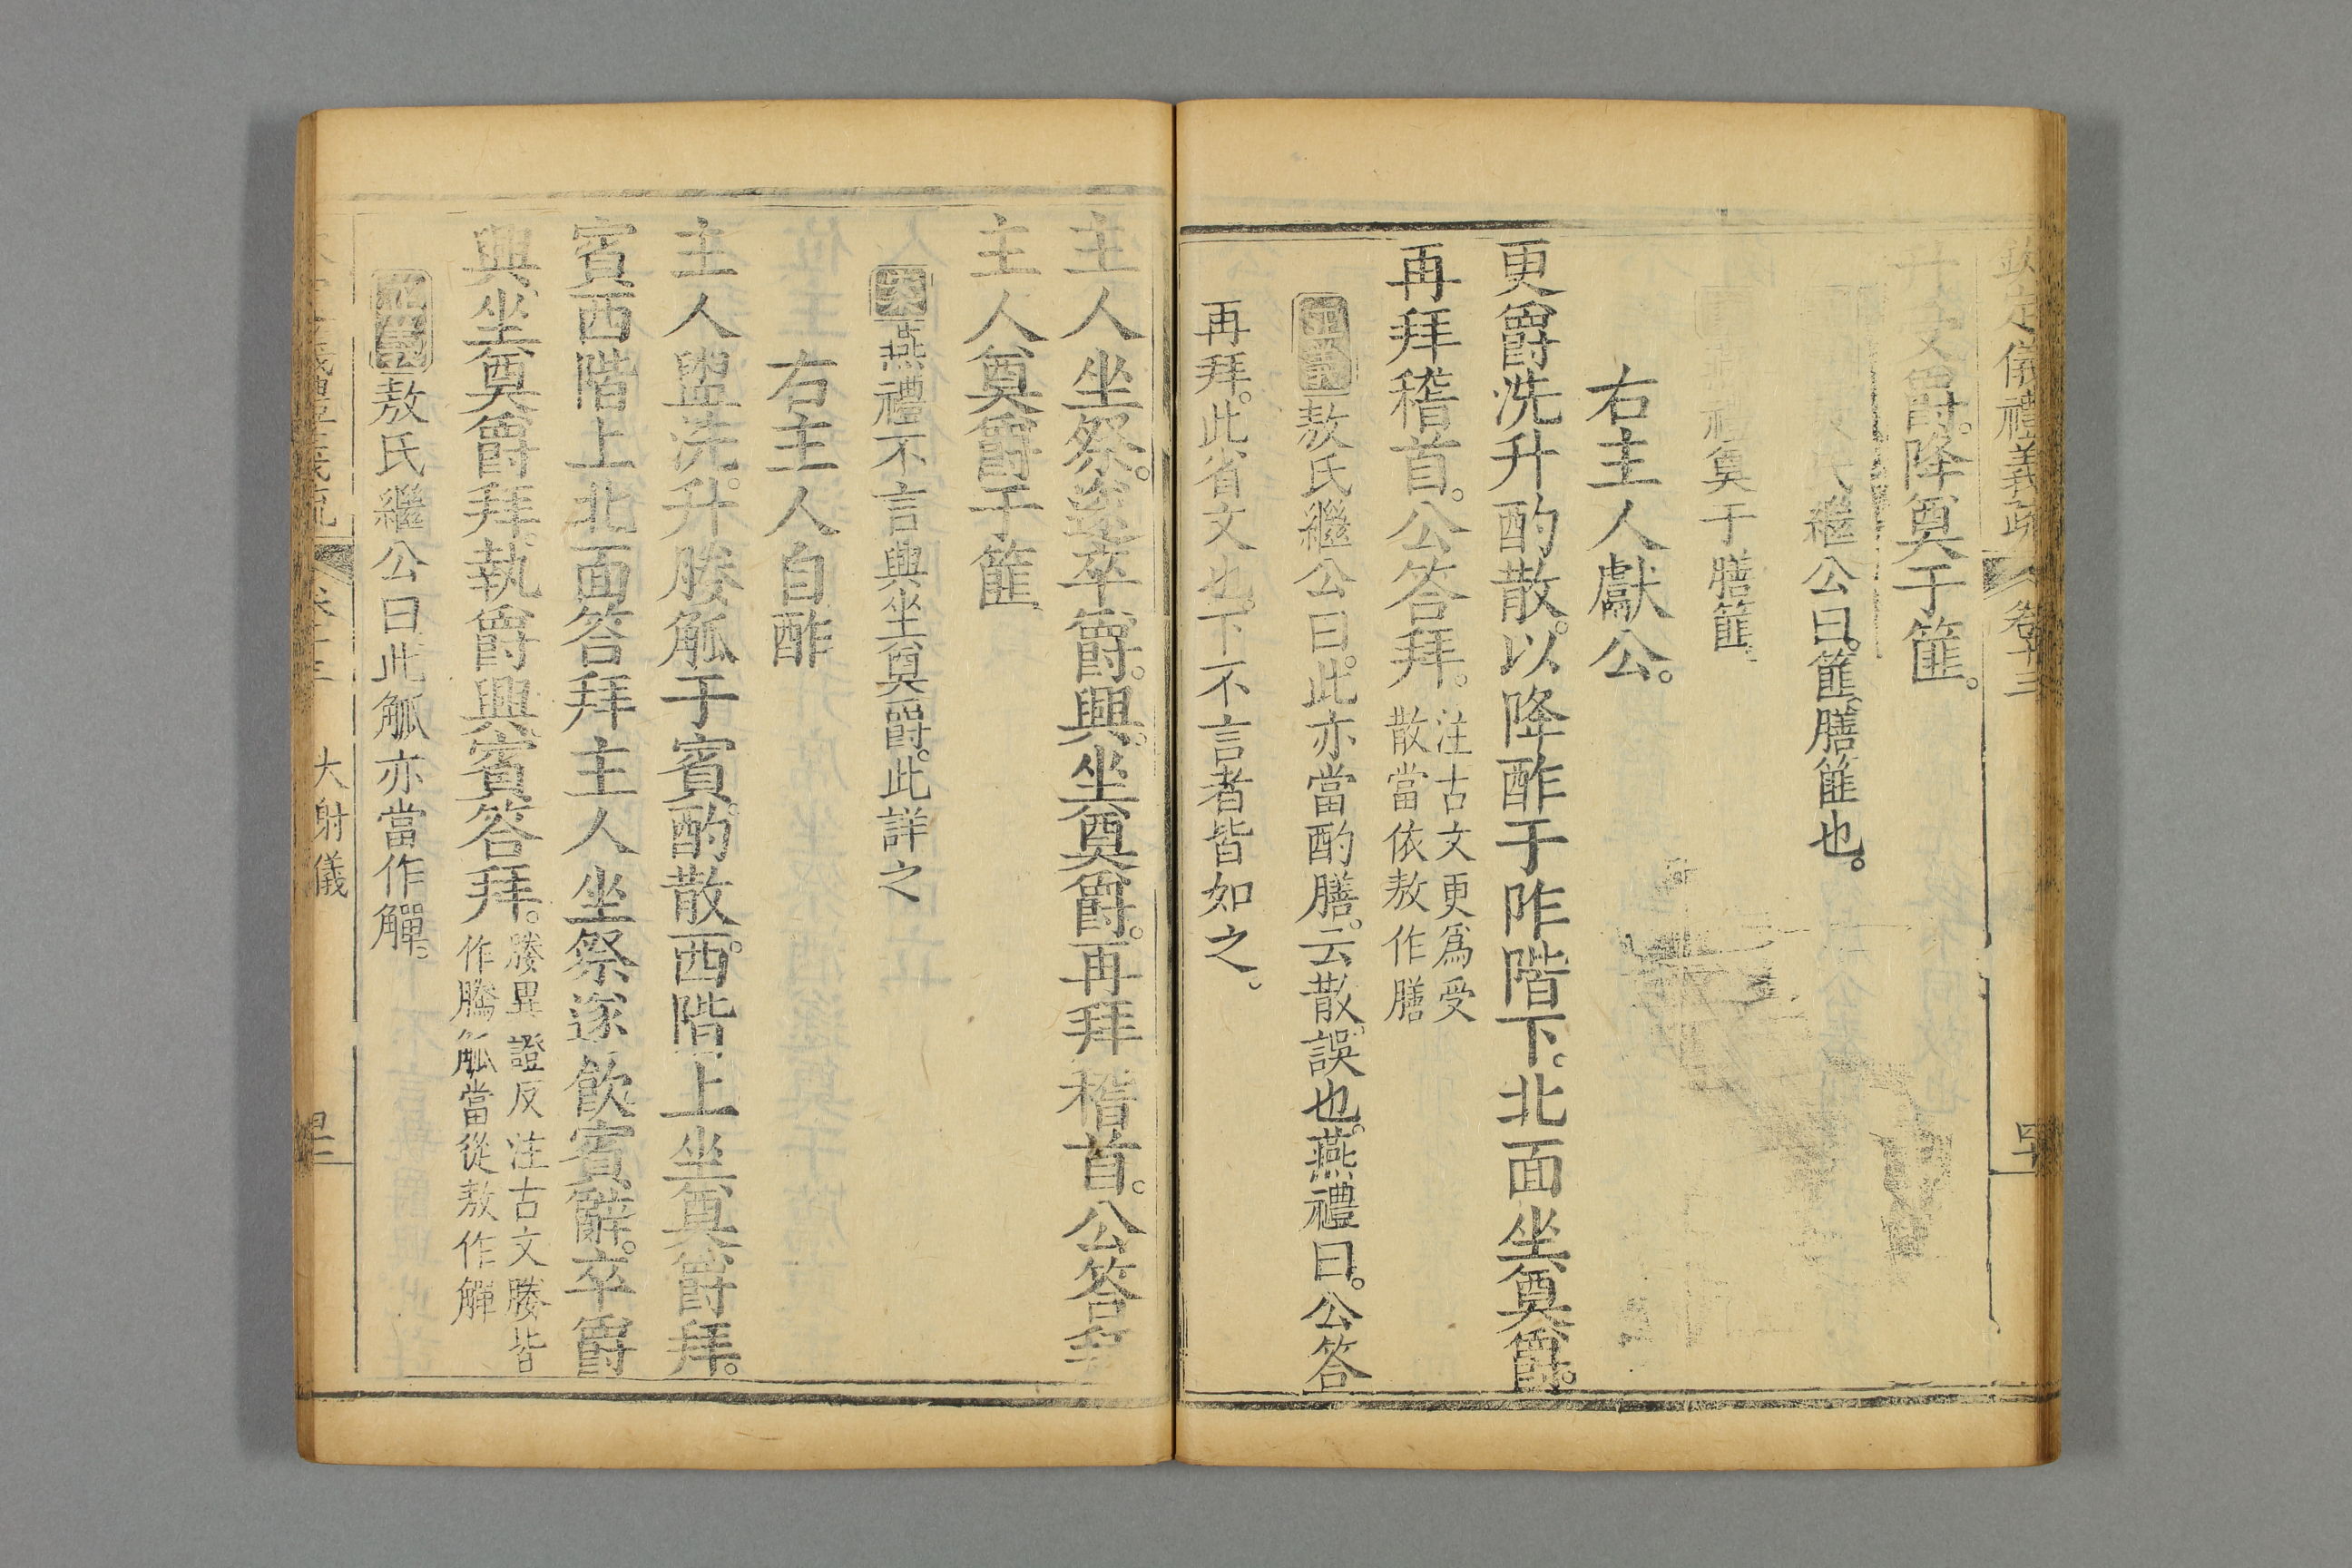 欽定儀禮義疏 卷十三
升受爵。降奠于篚。
氏繼公曰。篚。膳篚也。
禮奠于膳篚。
右主人獻公。
更爵洗升酌散。以降酢于阼階下。北面坐奠爵。
再拜稽首。公答拜。注古文更爲受
散當依敖作膳
正義敖氏繼公曰。此亦當酌膳。云散。誤也。燕禮曰。公答
再拜。此省文也。下不言者皆如之。
主人坐祭。遂卒爵。興。坐奠爵。再拜稽首。公答拜
主人奠爵于篚
案燕禮不言興坐奠爵。此詳之
右主人自酢
主人盥洗。升媵觚于賓。酌散。西階上坐奠爵拜。
賓西階上北面答拜主人坐祭遂飲賓辭。卒爵
興坐奠爵拜。執爵興賓答拜。媵異證反注古文媵皆
作騰觚當從敖作觶
正義敖氏繼公曰此觚亦當作觶。
大射儀